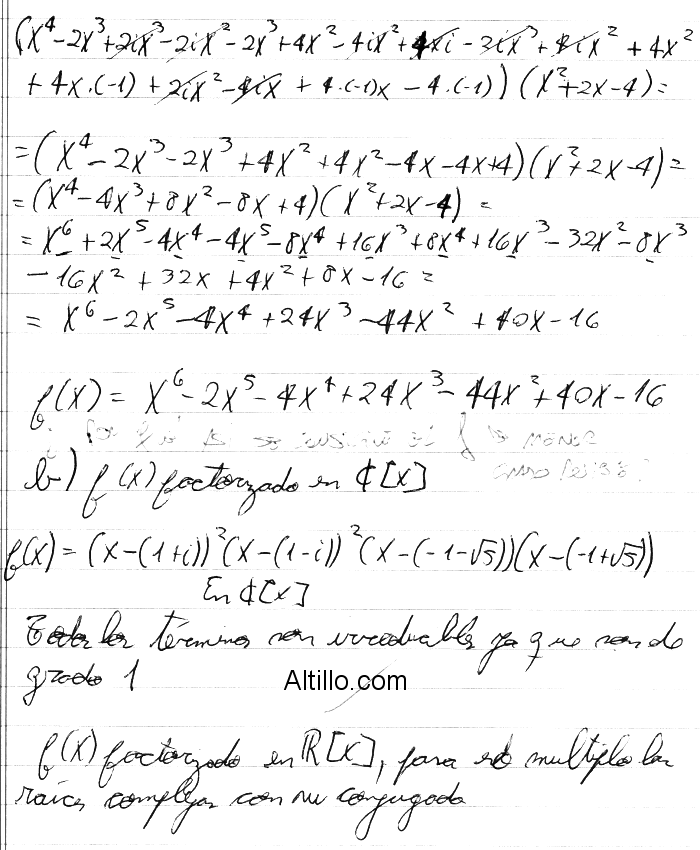 (x⁴-2x³+2ix³-2ix²-2x³+4x²-4ix²+4xi-2ix³+4ix²+4x²
+4x.(-1)+2ix²-4ix+4.(-1)x-4.(-1))(x²+2x-4)=
=(x⁴-2x³-2x³+4x²+4x²-4x-4x+4)(x²+2x-4)=
=(x⁴-4x³+8x²-8x+4)(x²+2x-4)=
=x⁶+2x⁵-4x⁴-4x⁵-8x⁴+16x³+8x⁴+16x³-32x²-8x³
-16x²+32x+4x²+8x-16=
=x⁶-2x⁵-4x⁴+24x³-44x²+40x-16
f(x)=x⁶-2x⁵-4x⁴+24x³-44x²+40x-16
¿ POR QUÉ de MENOR
b) f(x) factorizado en ℂ[x]
f(x)=(x-(1+i))²(x-(1-i))²(x-(-1-√5))(x-(-1+√5))
En ℂ[x]
Todos los términos son irreducibles ya que son de
grado 1
Altillo.com
f(x) factorizado en ℝ[x], para esto multiplo las
raíces complejas con su conjugado